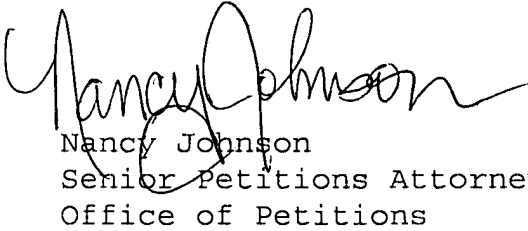 Nancy Johnson
Nancy Johnson
Senior Petitions Attorne
Office of Petitions